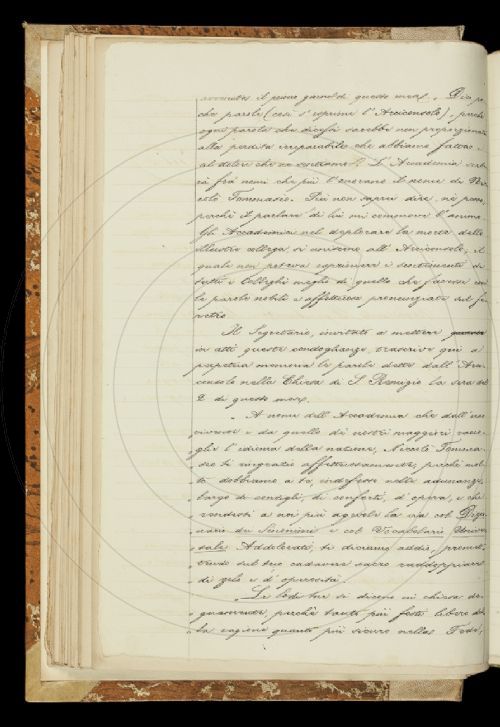 avvenuta il primo giorno di questo mese. Dio po-
che parole (così s'esprime l'Arciconsolo), perché
ogni parola che dicessi sarebbe non proporzionata
alla perdita irreparabile che abbiamo fatta e
al dolore che ne sentiamo. L'Accademia scri-
rà fra i nomi che più l'onorano il nome di Nic-
colò Tommaseo. Più non saprei dire, né posso,
perchè il parlare di lui mi commuove l'anima.
Gli Accademici nel deplorare la morte dello
illustre collega si uniscono all'Arciconsolo, il
quale non poteva esprimere i sentimenti di
tutti i colleghi meglio di quello che facesse con
le parole nobili e affettuose pronunziate sul fe-
retro.
Il Segretario, invitato a mettere
in atti queste condoglianze, trascrive qui a
perpetua memoria le parole dette dall'Arci-
consolo nella Chiesa di S. Remigio la sera del
2 di questo mese.
„ A nome dell'Accademia che dall'uni-
versale e da quello di nostri maggiori racco-
glie l'idioma della nazione, Niccolò Tommasè-
o ti ringrazio affettuosamente, perchè mol-
to dobbiamo a te, indefesso nelle adunanze,
largo di consigli, di conforti, d'opera, e che
rendesti a noi più agevole la via col Dizio-
nario dei Sinonimi e col Vocabolario Univer-
sale. Addolorati, ti diciamo addio, promet-
tendo sul tuo cadavere sacro raddoppiare
di zelo e d'operosità.
„ Le lodi tue si dicono in chiesa de-
gnamente, perchè tanto più fosti libero del-
la ragione quanto più sicuro nella Fede,